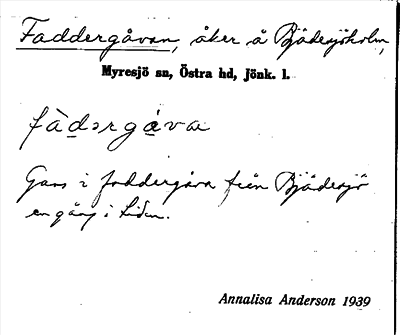 Faddergåvan, åker å Bjädesjöholm,
Myresjö sn, Östra hd, Jönk. l.
fàdərgåva
Gavs i faddergåva från Bjädesjö
en gång i tiden.
Annalisa Anderson 1939